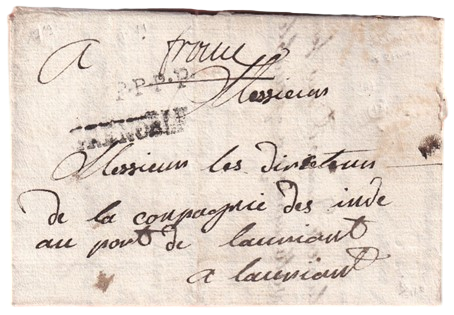 franc
P.P.P.P.
Messieurs
Messieurs les directeurs
de la conpagnie des inde
au port de lauriant
a lauriant